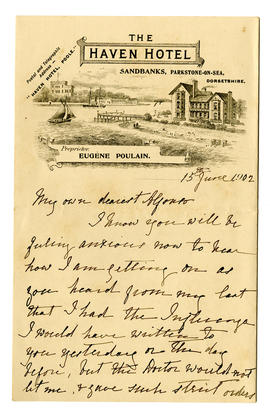 THE
HAVEN HOTEL
SANDBANKS, PARKSTONE-ON-SEA,
DORSETSHIRE.
Postal and Telegraphic
Address
"HAVEN HOTEL, POOLE."
Proprietor
EUGENE POULAIN.
15th June 1902
My own dearest Alfonso
I know you will be
feeling anxious now to hear
how I am getting on as
you heard from my last
that I had the Influenza
I would have written to
you yesterday or the day
before, but the Doctor would not
let me, & gave such strict orders